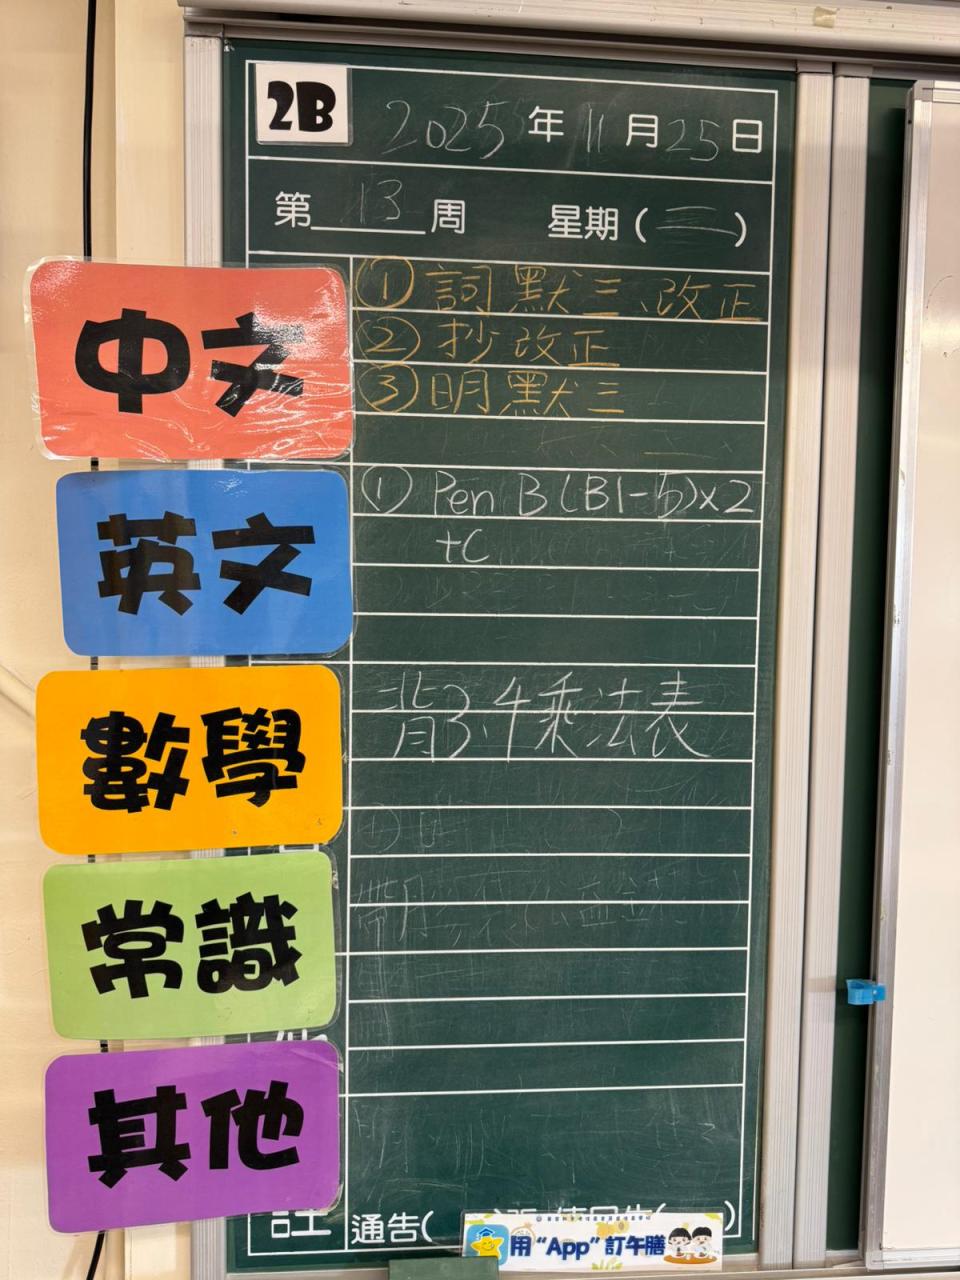 2B 2025年11月25日
第13周 星期(二)
中文
①詞默三、改正
②抄改正
③明默三
英文
① Pen B (B1-5)x2
+C
數學
背3,4乘法表
常識
其他
註 通告(
)
用“App”訂午膳